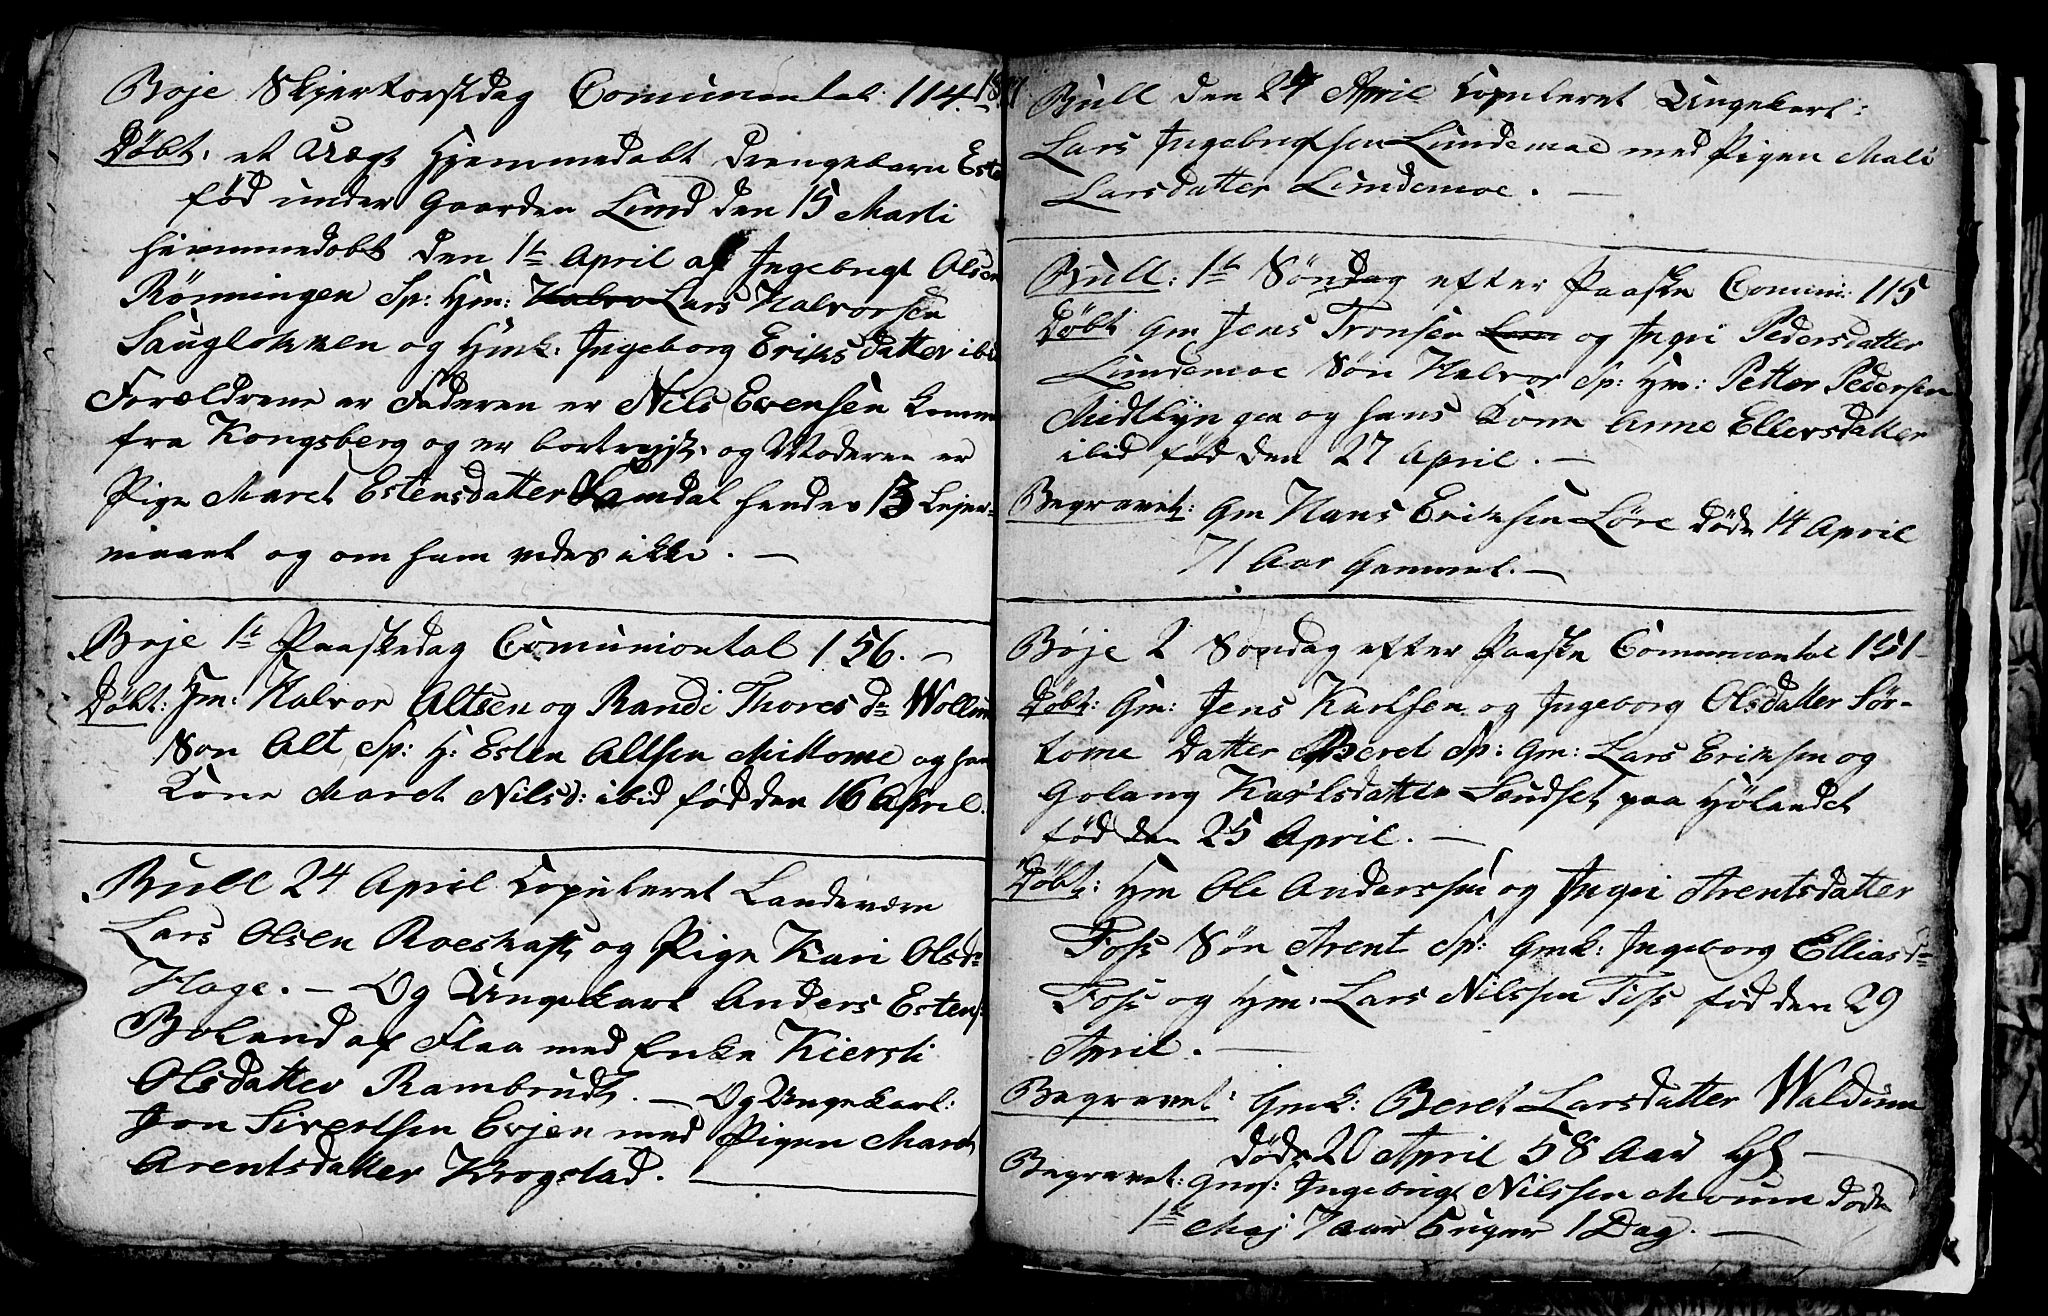 Boje Skjertorsdag Comunicantal: 114.
Døbt, et Uægt Hjemmedøbt Drengebarn Este
fød under Gaarden Lund den 15 Marti
hiemmedøbt den 1te April af Ingebrigt Olsen
Rønningen Sp: Hm: Halvo Lars Halvorsen
Sauglokken og Hmk: Ingeborg Eriksdatter ibid
Forældrene er Faderen er Nils Evensen komme
fra Kongsberg og er bortrejst, og Moderen er
Pige Maret Estensdatter Samdal hendes 1ste Lejer-
maal og om ham vides ikke. —
Boje 1te Paaskedag Comuniontal 156. —
Døbt: Hm: Halvor Altsen og Randi Thoresdr Wollum
Søn Alt Sp: H: Esten Altsen Mittome og han
Kone Maret Nilsd: ibid fød den 16 April.
Bull 24 April Copuleret Landevern
Lars Olsen Roeskaft og Pige Kari Olsdr
Hage. — Og Ungekarl Anders Estens:
Boland af Flaa med Enke Kiersti
Olsdatter Rambrudt. — Og Ungekarl:
Jon Sivertsen Evjen med Pigen Maret
Arentsdatter Krogstad.
Bull den 24 April Copuleret Ungekarl:
Lars Ingebrigtsen Lundemoe med Pigen Mali
Larsdatter Lundemoe. —
Bull: 1te Søndag efter Paaske Comun: 115
Døbt Gm Jens Tronsen og Ingri Pedersdatter
Lundemoe Søn Halvor Sp: Hm: Petter Pedersen
Midtlyngen og hans Kone Anne Ellevsdatter
ibid fød den 27 April. —
Begravet: Gm Hans Eriksen Løre døde 14 April
71 Aar Gammel. —
Bøje 2 Søndag efter Paaske Comunicantal 151-
Døbt: Gm: Jens Karlsen og Ingeborg Olsdatter Sør-
tome Datter Beret Sp: Gm: Lars Eriksen og
Golaug Karlsdatter Sundset paa Hølandet
fød den 25 April. —
Døbt: Hm Ole Anderssen og Ingri Arentsdatter
Foss Søn Arent Sp: Gmk: Ingeborg Elliasdr
Foss og Hm: Lars Nilssen Foss fød den 29
April. —
Begravet: Gmk: Beret Larsdatter Waldum
døde 20 April 58 Aar Gl —
Begravet: Gms: Ingebrigt Nilssen Moum døde
1te Maj 7 aar 6 uger 1 Dag. —